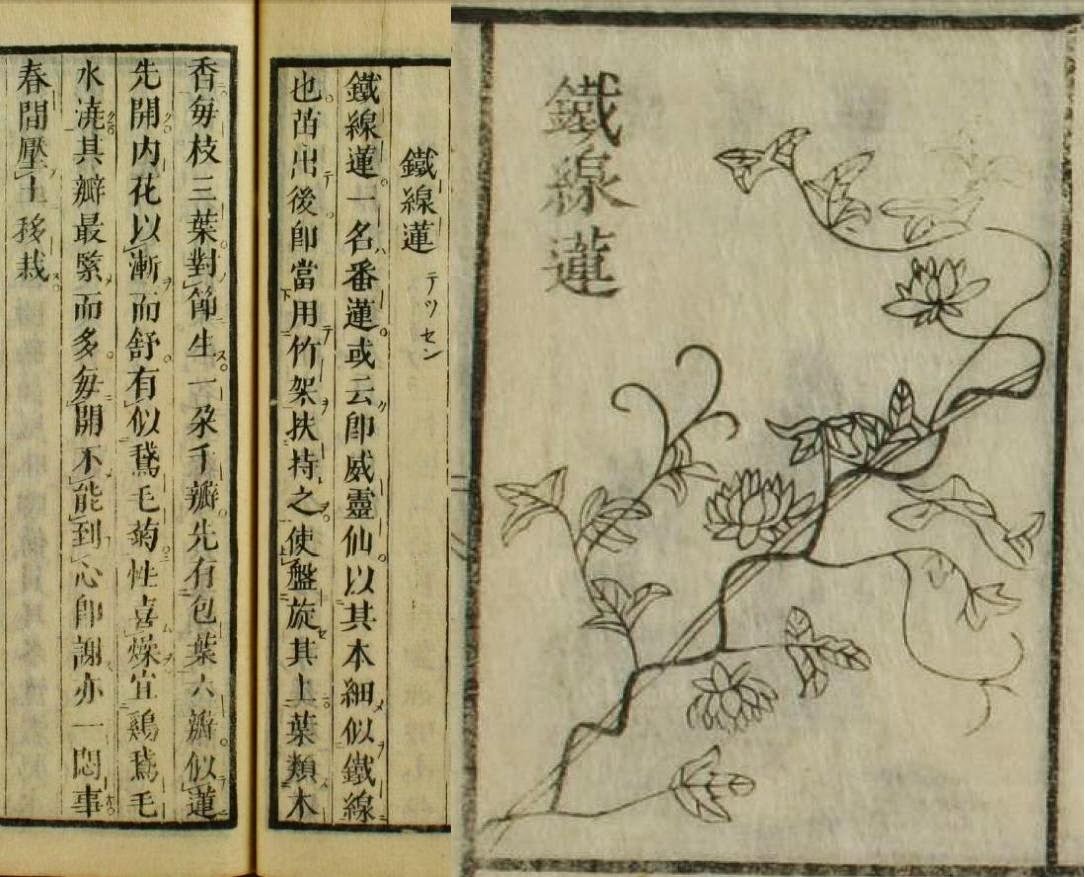 鐵線蓮
鐵線蓮 テツセン
鐵線蓮一名番蓮或云即威靈仙以其本細似鐵線
也苗出後即當用竹架扶持之使盤旋其上葉類木
香毎枝三葉對節生一朶千瓣先有包葉六瓣似蓮
先開内花以漸而舒有似鵞毛菊性喜燥宜鷄鵞毛
水澆其瓣最緊而多毎開不能到心即謝亦一悶事
春間壓土移栽